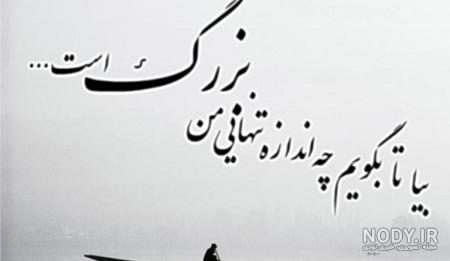 بیا تا بگویم چه اندازه تنهایی من
بزرگ است...
NODY.IR
مجله تصویری، خبری نودی